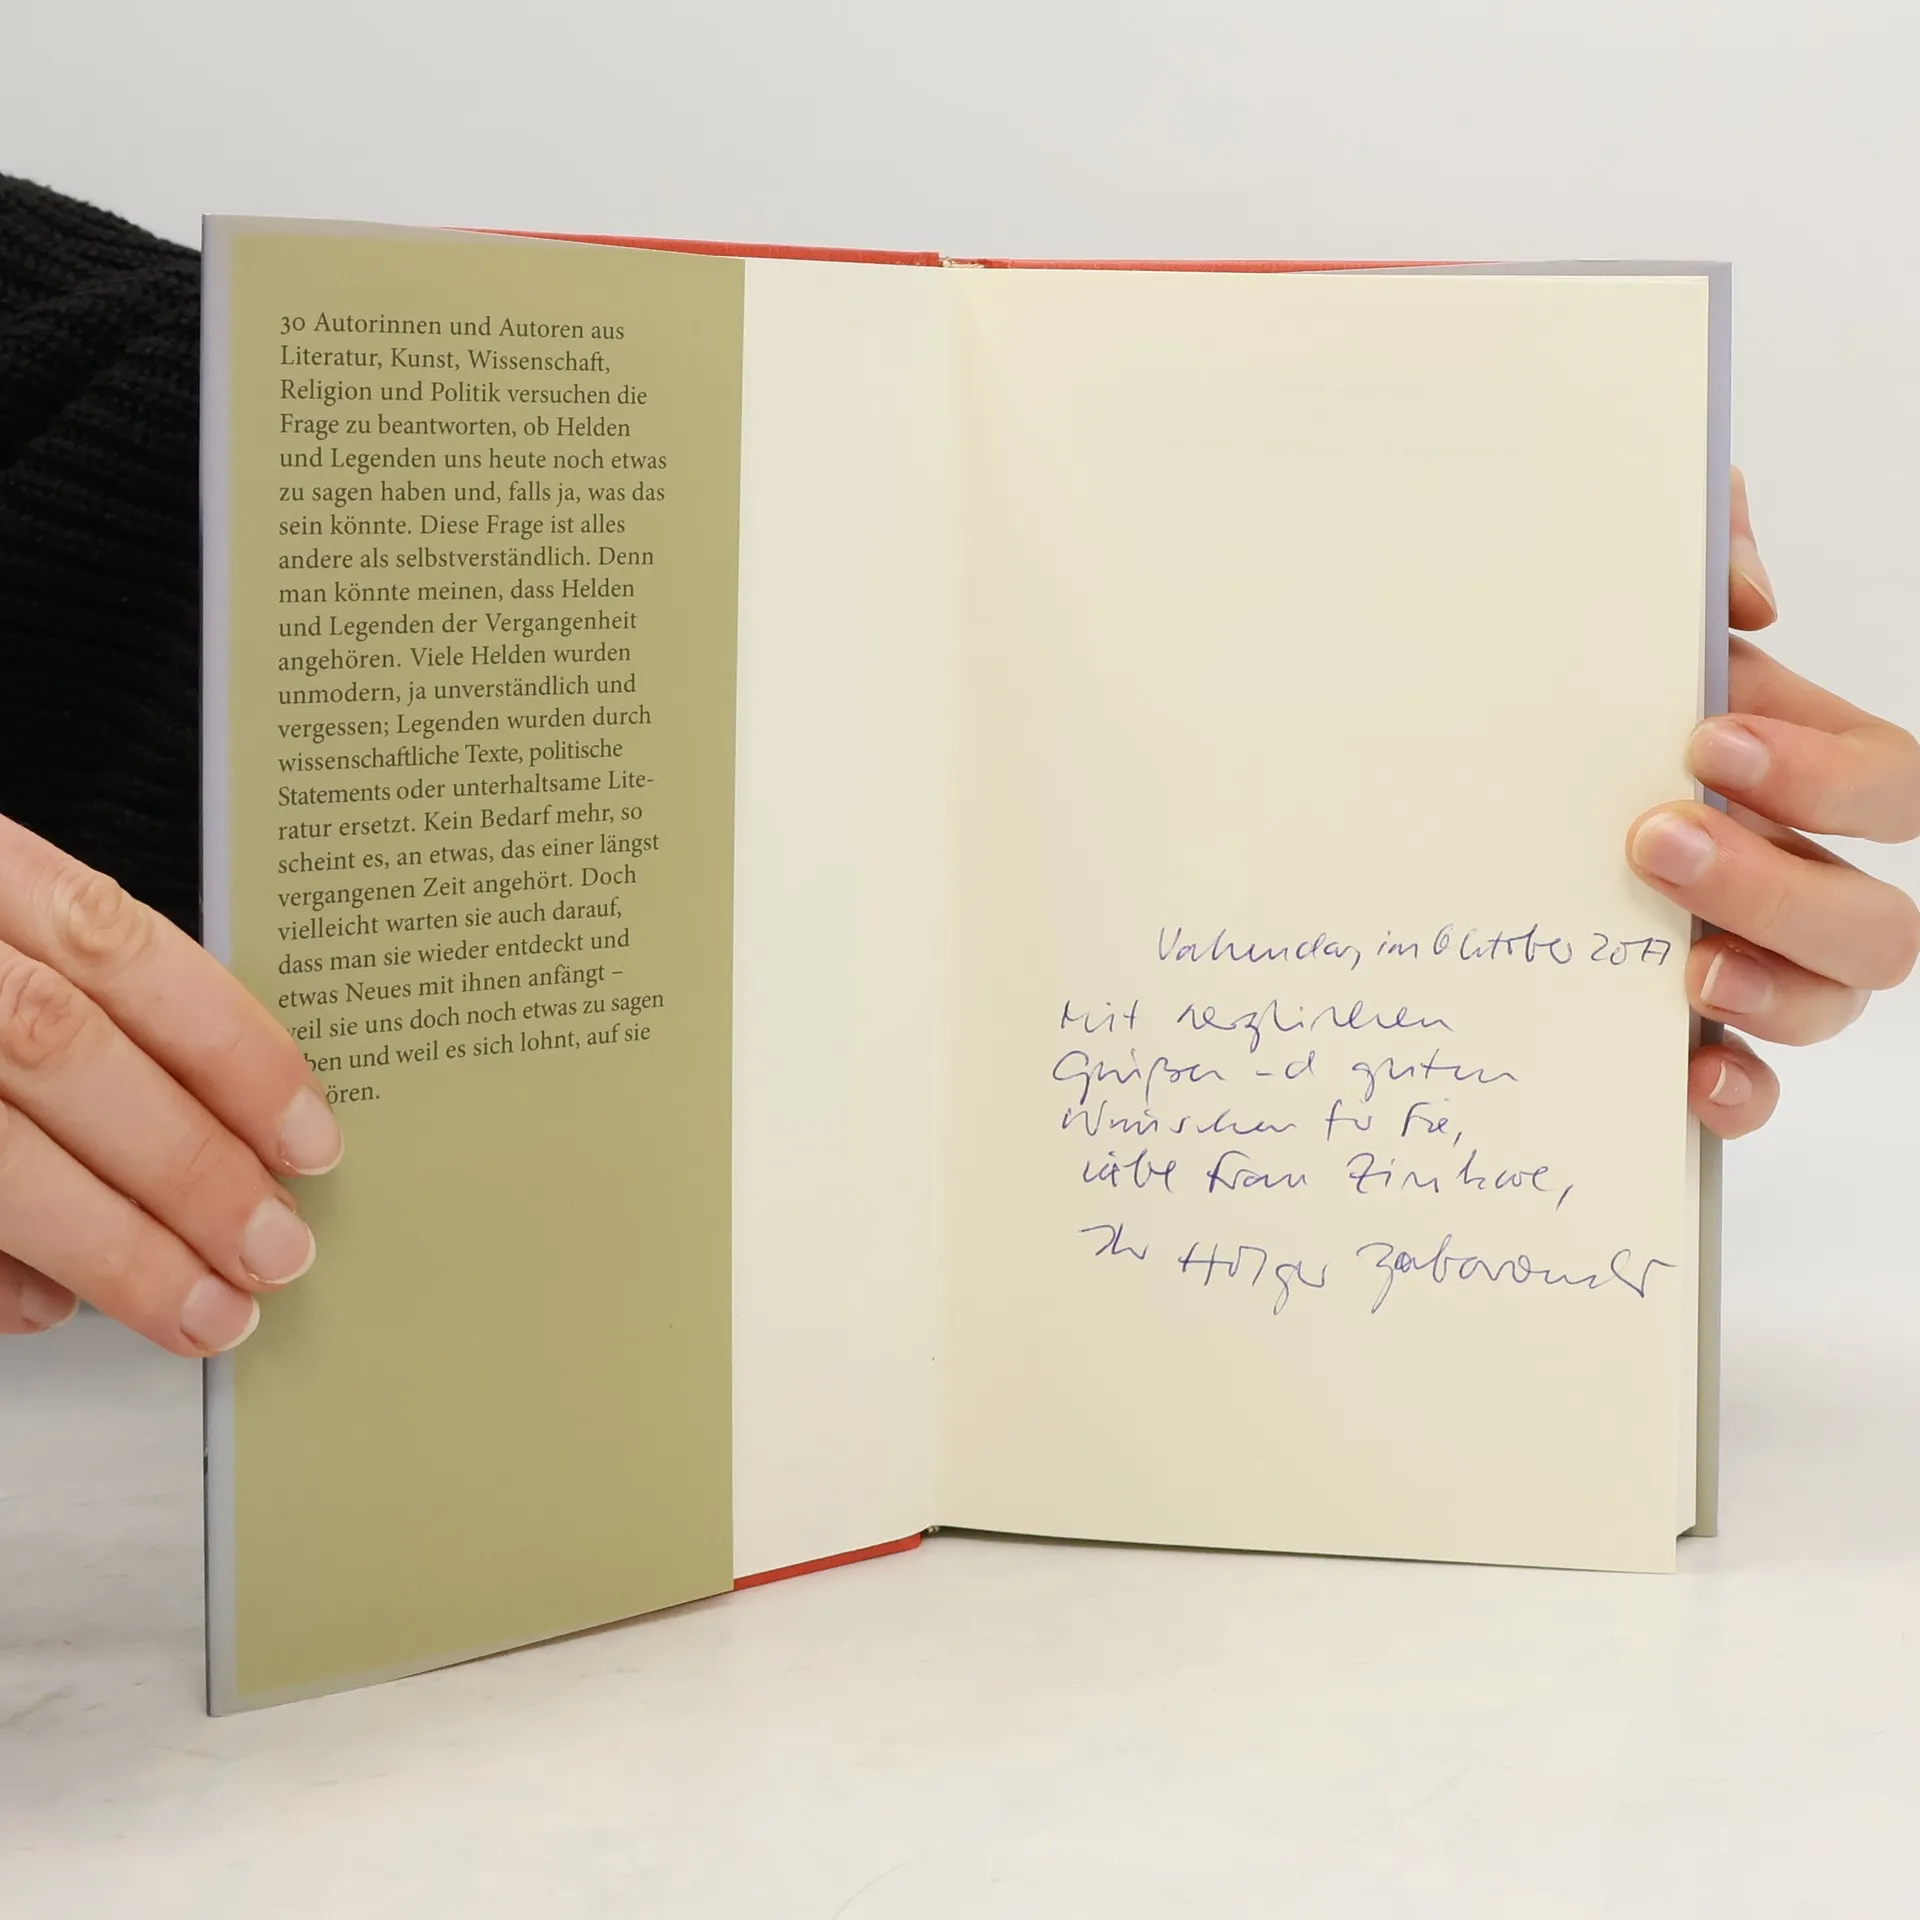 30 Autorinnen und Autoren aus
Literatur, Kunst, Wissenschaft,
Religion und Politik versuchen die
Frage zu beantworten, ob Helden
und Legenden uns heute noch etwas
zu sagen haben und, falls ja, was das
sein könnte. Diese Frage ist alles
andere als selbstverständlich. Denn
man könnte meinen, dass Helden
und Legenden der Vergangenheit
angehören. Viele Helden wurden
unmodern, ja unverständlich und
vergessen; Legenden wurden durch
wissenschaftliche Texte, politische
Statements oder unterhaltsame Lite-
ratur ersetzt. Kein Bedarf mehr, so
scheint es, an etwas, das einer längst
vergangenen Zeit angehört. Doch
vielleicht warten sie auch darauf,
dass man sie wieder entdeckt und
etwas Neues mit ihnen anfängt –
weil sie uns doch noch etwas zu sagen
ben und weil es sich lohnt, auf sie
ören.
im Oktober 2017
Mit herzlichen
Grüßen und guten
Wünschen für Sie,
liebe Frau
Ihr Holger Zaborowski